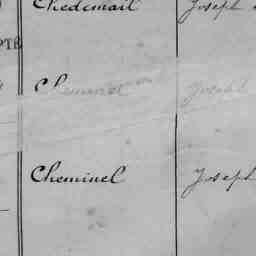 Chedemail Joseph
PTE
Cheminel Joseph
Cheminel Joseph